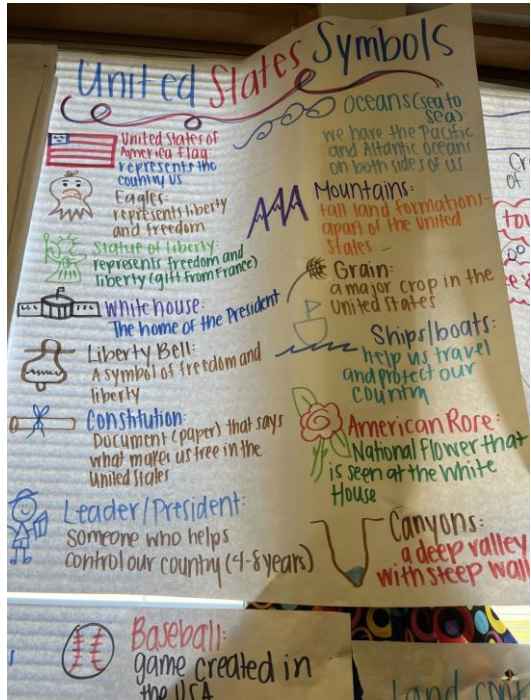 United States Symbols
United States of
America Flag:
represents the
country US
Eagles-
represents liberty
and freedom
Statue of liberty:
represents freedom and
liberty (gift from France)
White house:
The home of the President
Liberty Bell:
A symbol of freedom and
liberty
Constitution:
Document (paper) that says
what makes us free in the
United States
Leader/President:
someone who helps
control our country (4-8 years)
Baseball:
game created in
the USA
Oceans (sea to
sea):
we have the Pacific
and Atlantic oceans
on both sides of us
Mountains:
tall land formations-
apart of the United
States -
Grain:
a major crop in the
United States
Ships/boats:
help us travel
and protect our
country
American Rore:
National Flower that
is seen at the White
House
Canyons:
a deep valley
with steep wall
of
Land